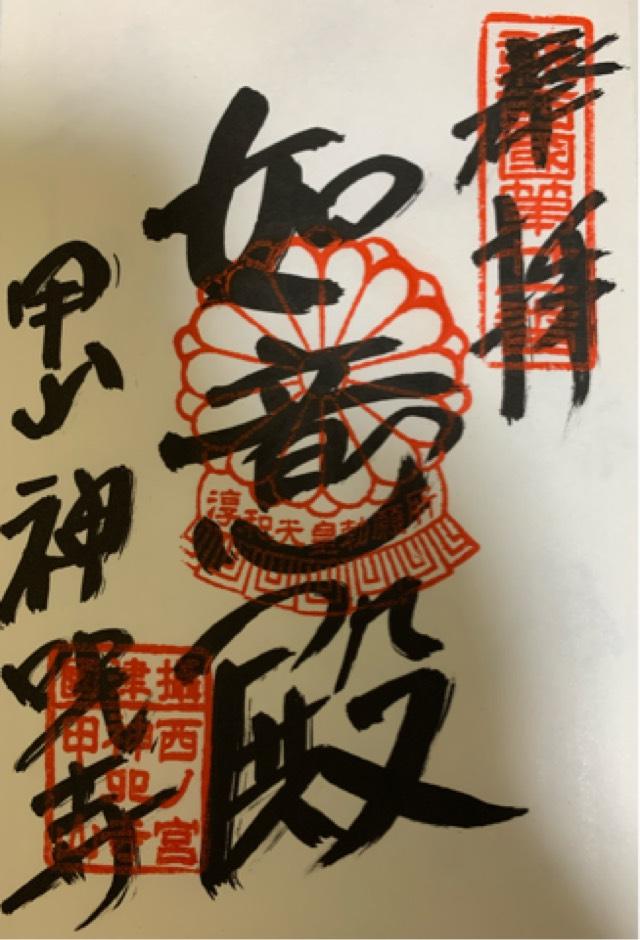 奉拝
如意殿
淳和天皇勅願所
甲山神呪寺
攝津國
西ノ宮
神呪寺
甲山